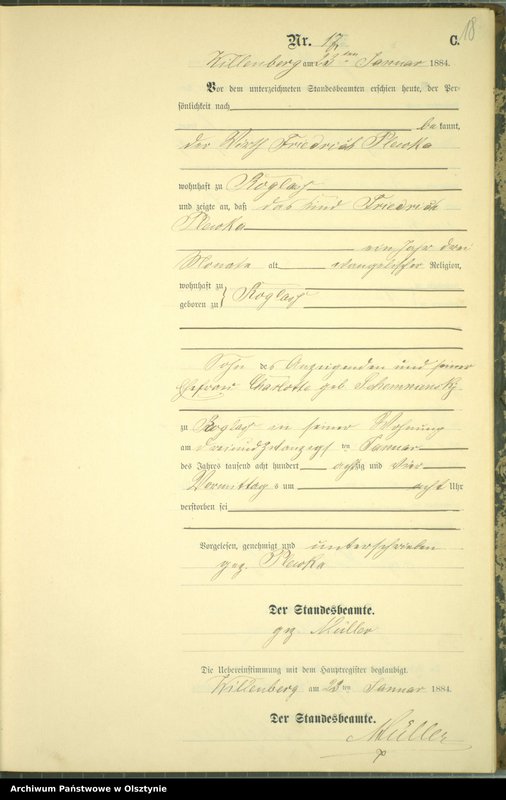 18
Nr. 17 C.
Willenberg am 23ten Januar 1884.
Vor dem unterzeichneten Standesbeamten erschien heute, der Per-
sönlichkeit nach
bekannt,
der Wirth Friedrich Plewka
wohnhaft zu Roglack
und zeigte an, daß das Kind Friedrich
Plewka
ein Jahr drei
Monate alt evangelischer Religion,
wohnhaft zu
geboren zu } Roglack
Sohn des Anzeigenden und seiner
Ehefrau Charlotte geb.
zu Roglack in seiner Wohnung
am dreiundzwanzigsten Januar
des Jahres tausend acht hundert achtzig und vier
Vormittags um acht Uhr
verstorben sei
Vorgelesen, genehmigt und unterschrieben
gez. Plewka
Der Standesbeamte.
gez. Müller
Die Uebereinstimmung mit dem Hauptregister beglaubigt.
Willenberg am 23ten Januar 1884.
Der Standesbeamte.
Müller
Archiwum Państwowe w Olsztynie